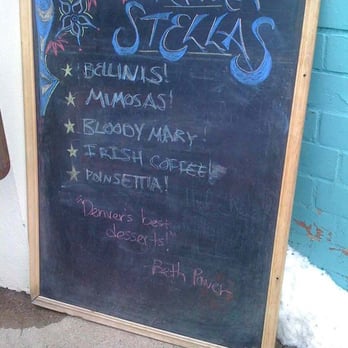 STELLAS
BELLINIS!
MIMOSAS!
BLOODY MARY!
IRISH COFFEE!
POINSETTIA!
"Denver's best
desserts!"
- Beth